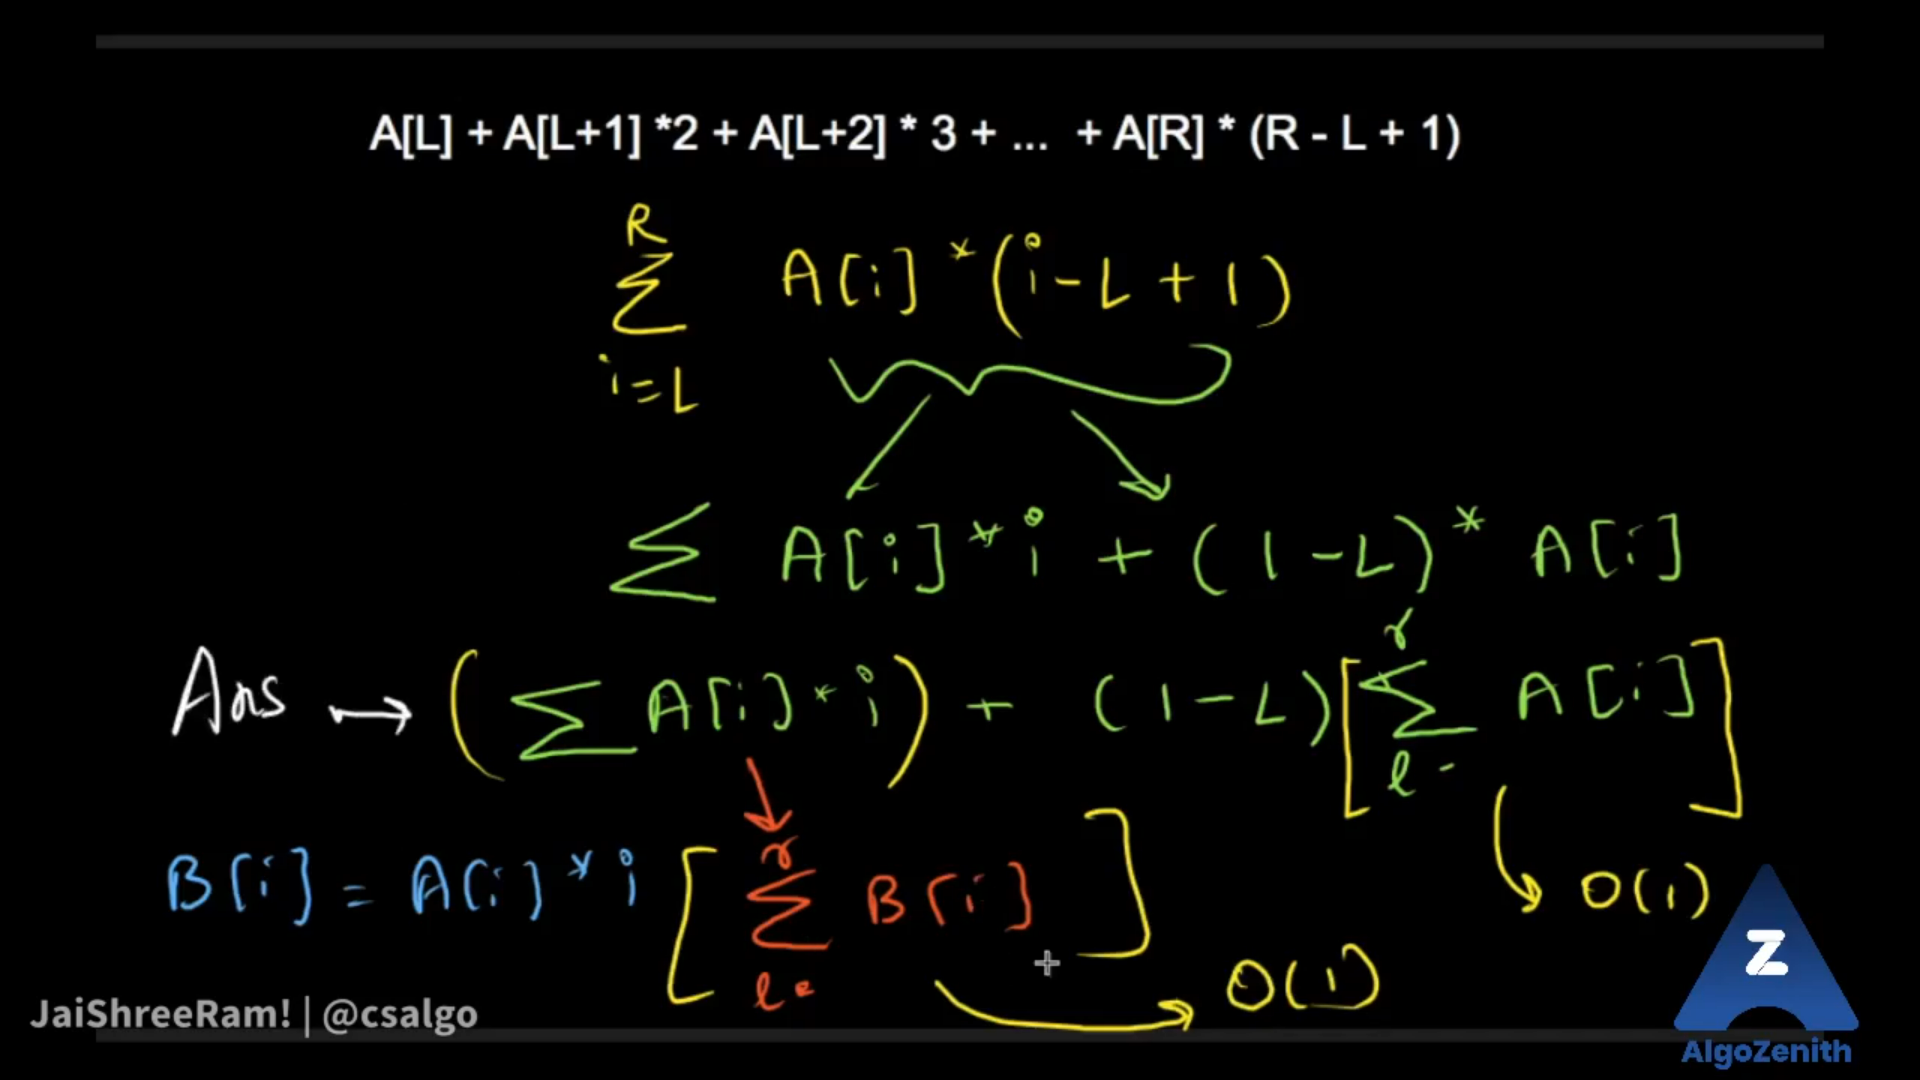 A[L] + A[L+1] *2 + A[L+2] * 3 + ... + A[R] * (R - L + 1)
R
Σ A[i] * (i - L + 1)
i = L
Σ A[i] * i + (1 - L) * A[i]
r
Ans → (Σ A[i] * i) + (1 - L) [Σ A[i]]
l -
r
B[i] = A[i] * i [Σ B[i]]
O(1)
l
O(1)
JaiShreeRam! | @csalgo
Z
AlgoZenith